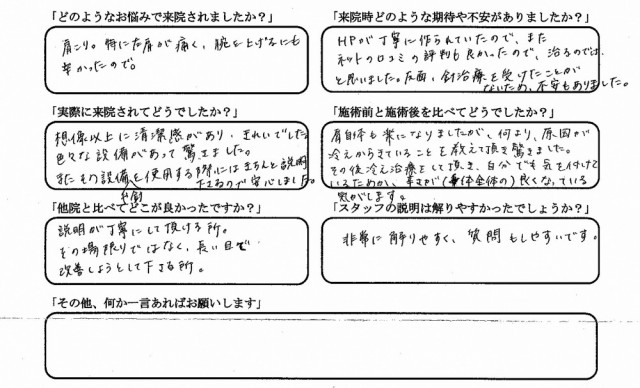 「どのようなお悩みで来院されましたか？」
肩こり。特に右肩が痛く、腕を上げるにも
辛かったので。
「来院時どのような期待や不安がありましたか？」
HPが丁寧に作られていたので、また
ネットの口コミの評判も良かったので、治るのでは
と思いました。反面、針治療を受けたことが
ないため、不安もありました。
「実際に来院されてどうでしたか？」
想像以上に清潔感があり、きれいでした。
色々な設備があって驚きました。
またその設備を使用する際にはきちんと説明
下さるので安心しました。
「施術前と施術後を比べてどうでしたか？」
肩自体も楽になりましたが、何より、原因が
冷えからきていることを教えて頂き驚きました。
その後冷え治療をして頂き、自分でも気を付けて
いるためか、(身体全体の)良くなっている
気がします。
「他院と比べてどこが良かったですか？」
説明が丁寧にして頂ける所。
その場限りではなく、長い目で
改善しようとして下さる所。
「スタッフの説明は解りやすかったでしょうか？」
非常に解りやすく、質問もしやすいです。
「その他、何か一言あればお願いします」